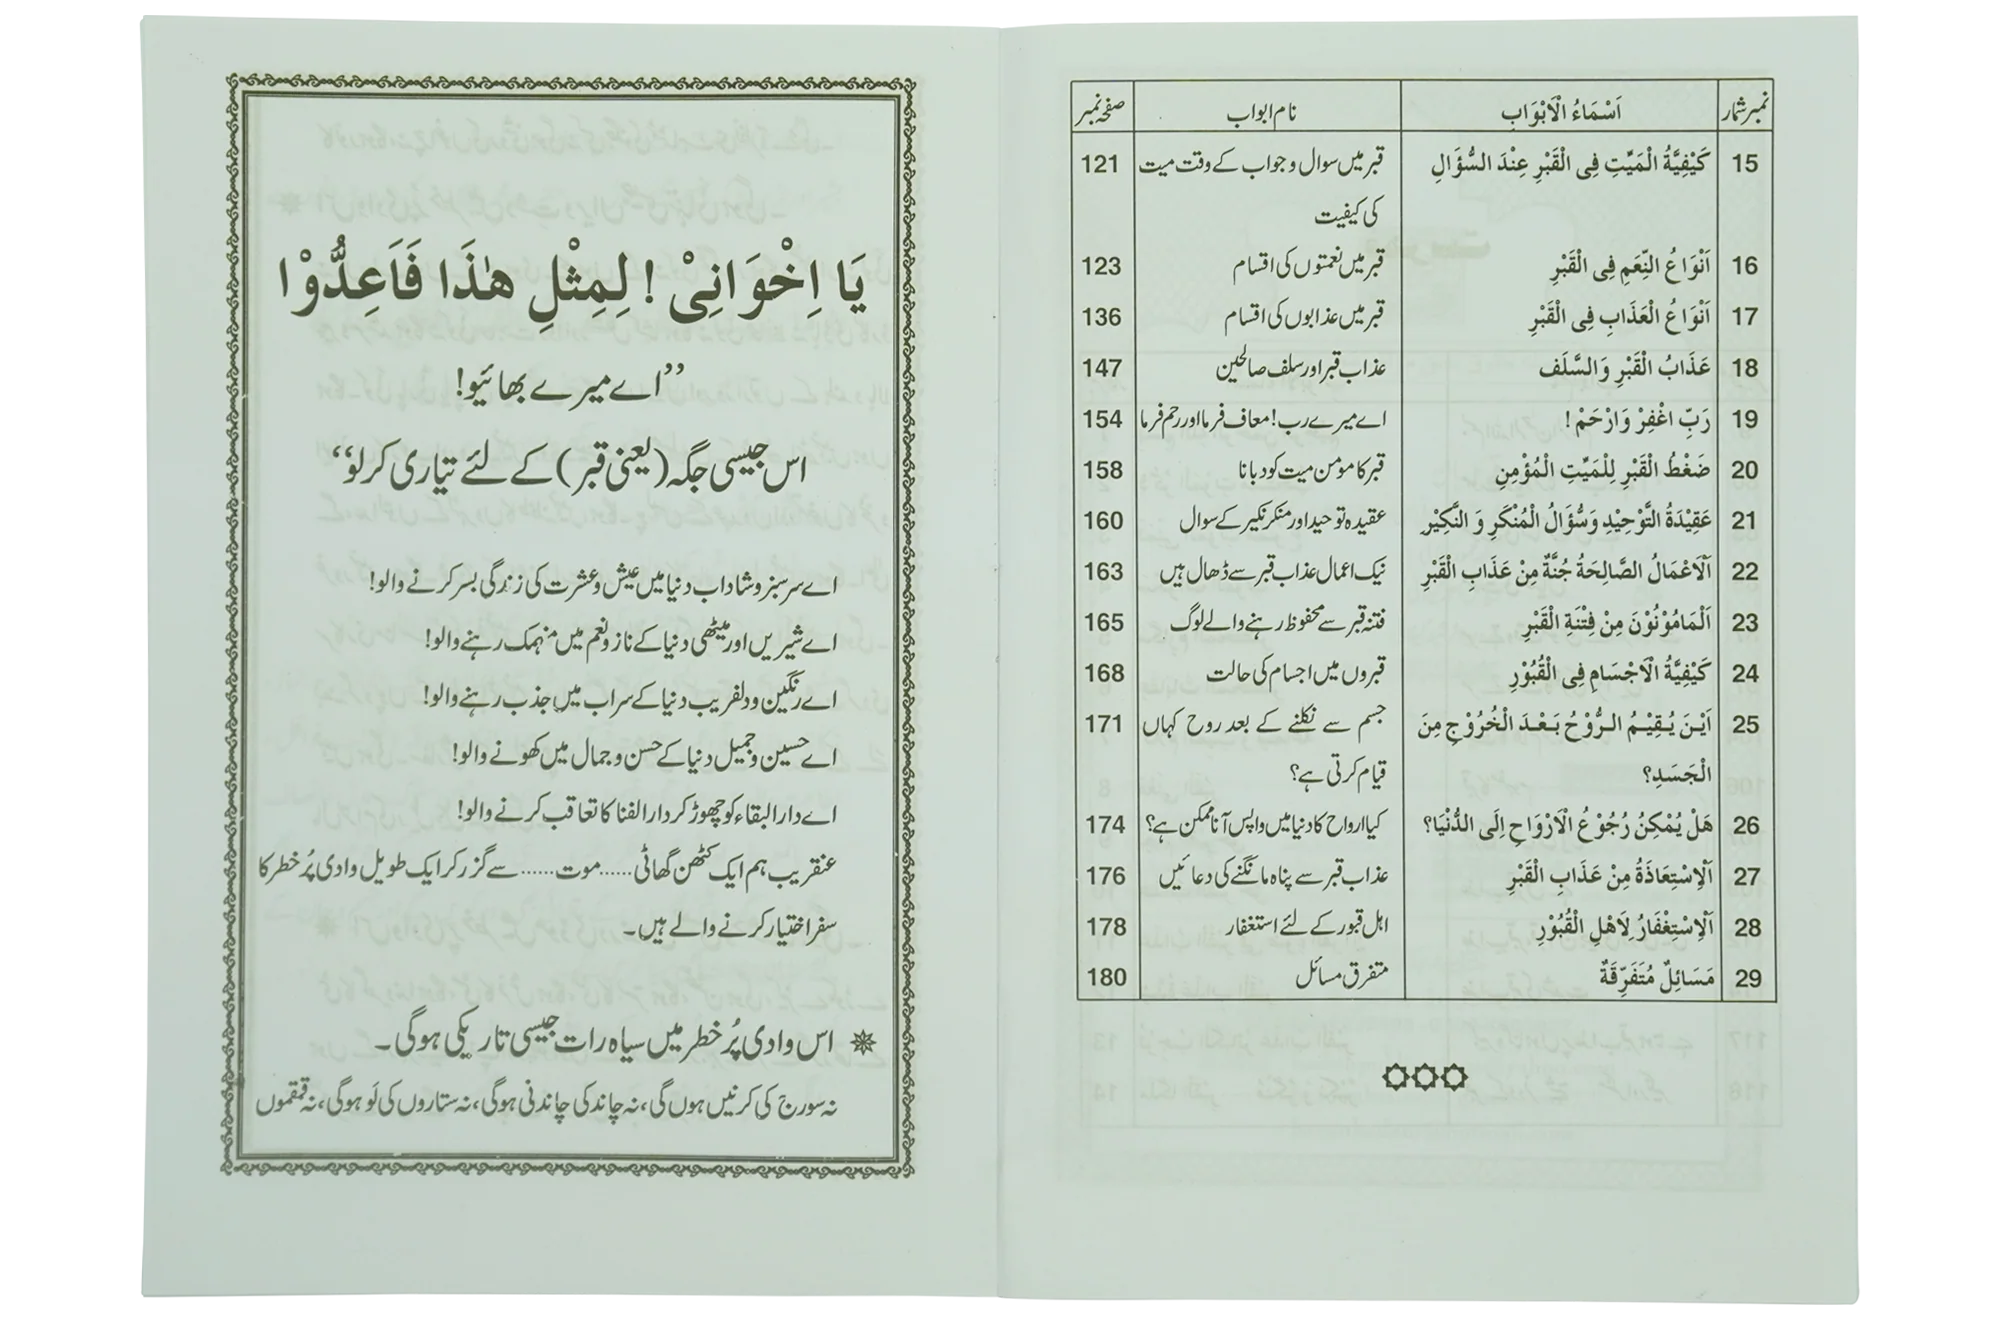 نمبر شمار اَسْمَاءُ الْاَبْوَابِ نام ابواب صفحہ نمبر
15 كَيْفِيَّةُ الْمَيِّتِ فِى الْقَبْرِ عِنْدَ السُّؤَالِ قبر میں سوال و جواب کے وقت میت 121
کی کیفیت
16 اَنْوَاعُ النِّعَمِ فِى الْقَبْرِ قبر میں نعمتوں کی اقسام 123
17 اَنْوَاعُ الْعَذَابِ فِى الْقَبْرِ قبر میں عذابوں کی اقسام 136
18 عَذَابُ الْقَبْرِ وَالسَّلَف عذاب قبر اور سلف صالحین 147
19 رَبِّ اغْفِرْ وَارْحَمْ ! اے میرے رب! معاف فرما اور رحم فرما 154
20 ضَغْطُ الْقَبْرِ لِلْمَيِّتِ الْمُؤْمِنِ قبر کا مؤمن میت کو دبانا 158
21 عَقِيْدَةُ التَّوْحِيْدِ وَسُّؤَالُ الْمُنْكَرِ وَ النَّكِيْرِ عقیدہ توحید اور منکر نکیر کے سوال 160
22 اَلْاَعْمَالُ الصَّالِحَةُ جُنَّةٌ مِنْ عَذَابِ الْقَبْرِ نیک اعمال عذاب قبر سے ڈھال ہیں 163
23 اَلْمَامُوْنُوْنَ مِنْ فِتْنَةِ الْقَبْرِ فتنہ قبر سے محفوظ رہنے والے لوگ 165
24 كَيْفِيَّةُ الْاَجْسَامِ فِى الْقُبُوْرِ قبروں میں اجسام کی حالت 168
25 اَيْنَ يُقِيْمُ الرُّوْحُ بَعْدَ الْخُرُوْجِ مِنَ جسم سے نکلنے کے بعد روح کہاں 171
الْجَسَدِ؟ قیام کرتی ہے؟
26 هَلْ يُمْكِنُ رُجُوْعُ الْاَرْوَاحِ اِلَى الدُّنْيَا؟ کیا ارواح کا دنیا میں واپس آنا ممکن ہے؟ 174
27 اَلْاِسْتِعَاذَةُ مِنْ عَذَابِ الْقَبْرِ عذاب قبر سے پناہ مانگنے کی دعائیں 176
28 اَلْاِسْتِغْفَارُ لِاَهْلِ الْقُبُوْرِ اہل قبور کے لئے استغفار 178
29 مَسَائِلٌ مُتَفَرِّقَةٌ متفرق مسائل 180
يَا اِخْوَانِىْ ! لِمِثْلِ هٰذَا فَاَعِدُّوْا
”اے میرے بھائیو!
اس جیسی جگہ (یعنی قبر) کے لئے تیاری کر لو“
اے سرسبز و شاداب دنیا میں عیش و عشرت کی زندگی بسر کرنے والو!
اے شیریں اور میٹھی دنیا کے ناز و نعم میں منہمک رہنے والو!
اے رنگین و دلفریب دنیا کے سراب میں جذب رہنے والو!
اے حسین و جمیل دنیا کے حسن و جمال میں کھونے والو!
اے دارالبقاء کو چھوڑ کر دارالفنا کا تعاقب کرنے والو!
عنقریب ہم ایک کٹھن گھاٹی ...... موت ...... سے گزر کر ایک طویل وادی پُر خطر کا
سفر اختیار کرنے والے ہیں۔
اس وادی پُر خطر میں سیاہ رات جیسی تاریکی ہوگی۔
نہ سورج کی کرنیں ہوں گی، نہ چاند کی چاندنی ہوگی، نہ ستاروں کی لَو ہوگی، نہ قمقموں